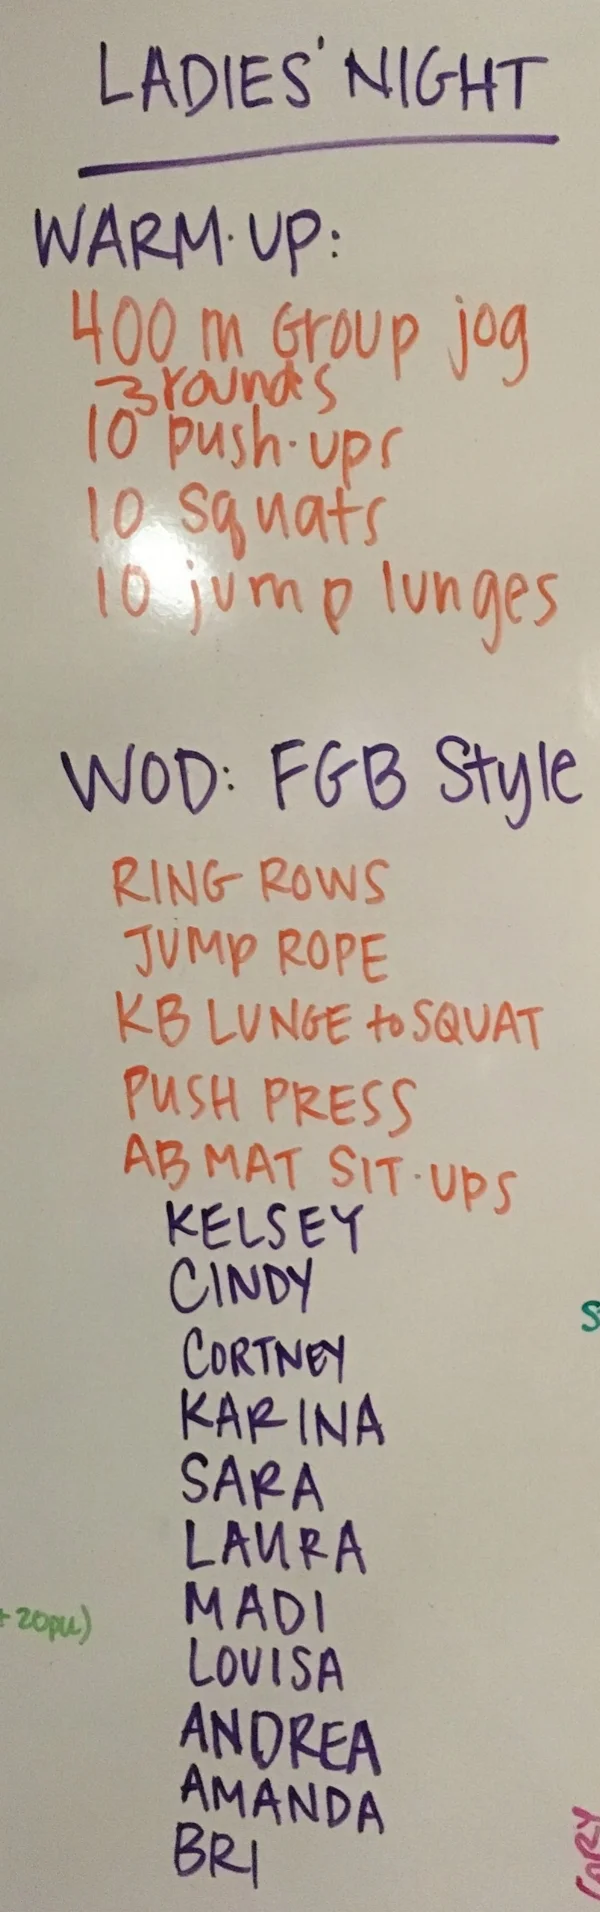 LADIES' NIGHT
WARM-UP:
400 m Group jog
3 rounds
10 push-ups
10 squats
10 jump lunges
WOD: FGB Style
RING ROWS
JUMP ROPE
KB LUNGE to SQUAT
PUSH PRESS
AB MAT SIT-UPS
KELSEY
CINDY
CORTNEY
KARINA
SARA
LAURA
+ 20pu) MADI
LOUISA
ANDREA
AMANDA
BRI